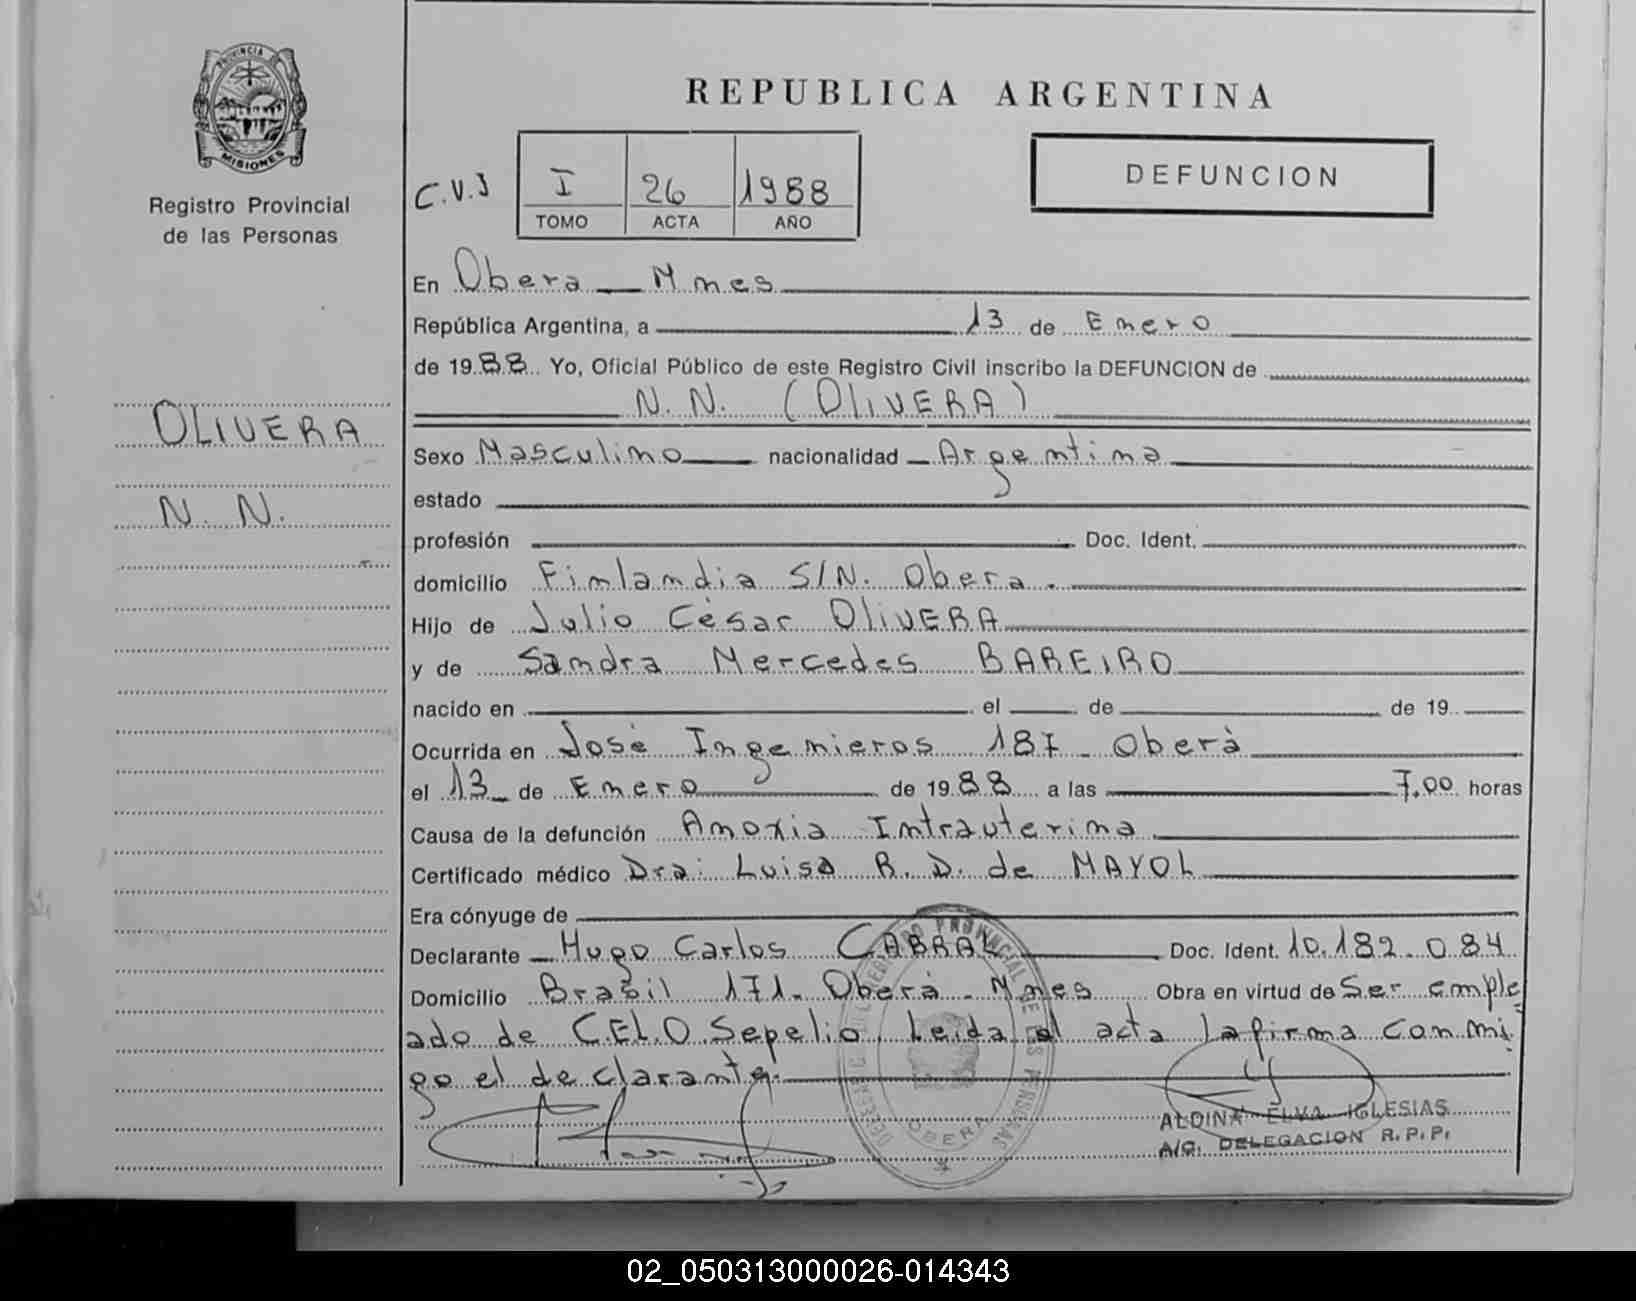 PROVINCIA DE
MISIONES
Registro Provincial
de las Personas
OLIVERA
N. N.
REPUBLICA ARGENTINA
C.V.J
I 26 1988
TOMO ACTA AÑO
DEFUNCION
En Obera Mnes
República Argentina, a 13 de Enero
de 19 88 Yo, Oficial Público de este Registro Civil inscribo la DEFUNCION de
N. N. (OLIVERA)
Sexo Masculino nacionalidad Argentina
estado
profesión Doc. Ident.
domicilio Finlandia S/N. Obera.
Hijo de Julio César OLIVERA
y de Sandra Mercedes BAREIRO
nacido en el de de 19
Ocurrida en José Ingenieros 187 Oberà
el 13 de Enero de 19 88 a las 7,00 horas
Causa de la defunción Anoxia Intrauterina
Certificado médico Dra: Luisa R. D. de MAYOL
Era cónyuge de
Declarante Hugo Carlos CABRAL Doc. Ident. 10.182.084
Domicilio Brasil 171. Oberà - Mnes Obra en virtud de Ser emple
ado de C.E.L.O Sepelio. Leida el acta la firma conmi
go el declarante.
REGISTRO PROVINCIAL DE LAS PERSONAS
OBERA
ALDINA ELVA IGLESIAS
A/C. DELEGACION R.P.P.
02_050313000026-014343